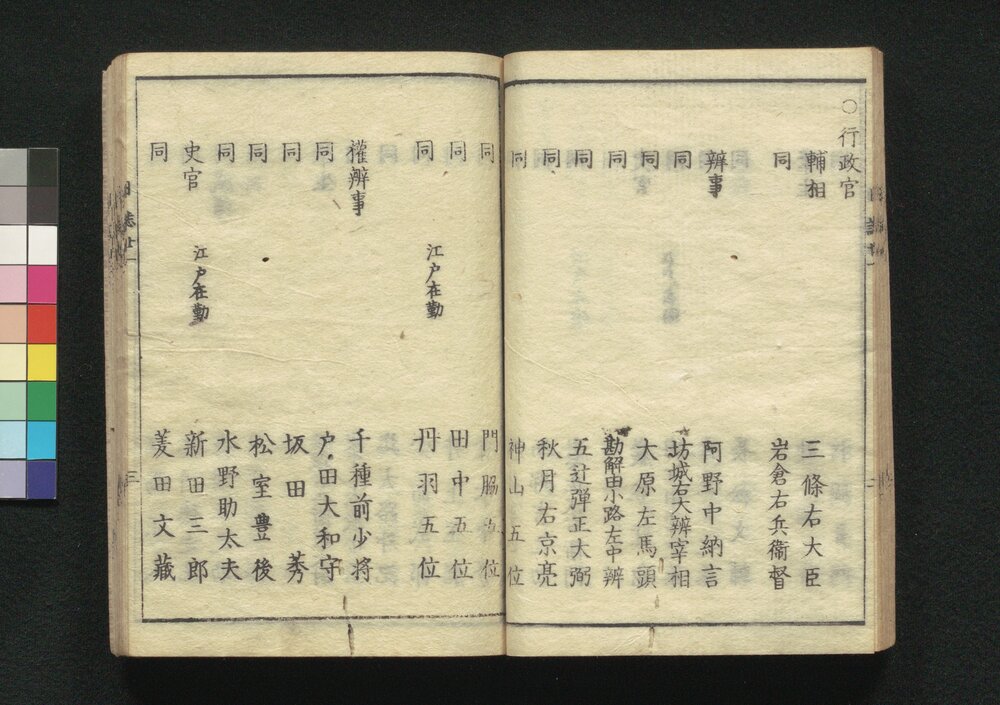 ○行政官
輔相 三條右大臣
同 岩倉右兵衞督
辨事 阿野中納言
同 坊城右大辨宰相
同 大原左馬頭
同 勘解由小路左中辨
同 五辻彈正大弼
同 秋月右京亮
同 神山五位
同 門脇五位
同 田中五位
同 江戸在勤 丹羽五位
權辨事 千種前少将
同 戸田大和守
同 坂田莠
同 松室豊後
同 水野助太夫
史官 江戸在勤 新田三郎
同 菱田文藏
三